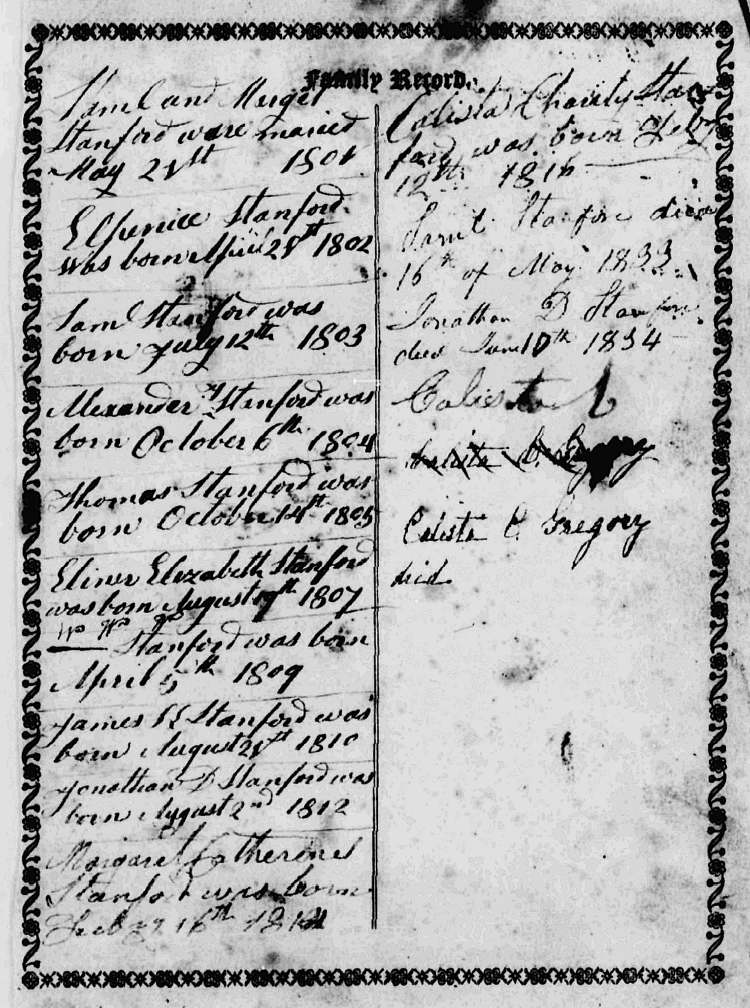 Family Record.
Saml and Marget
Stanford ware maried
May 21st 1801
Elpenice Stanford
was born April 21st 1802
Saml Stanford was
born July 12th 1803
Alexander M Stanford was
born October 6th 1804
Thomas Stanford was
born October 14th 1805
Eliner Elizabeth Stanford
was born August 19th 1807
Stanford was born
April 5th 1809
James H Stanford was
born August 21st 1810
Jonathan D Stanford was
born August 2nd 1812
Margaret Catherine
Stanford was born
16th 1814
Calista Charity Stan
ford was born Feby
12th 1816
Saml Stanford died
16th of May 1833
Jonathan D Stanford
died June 10th 1834
Calista
Calista C. Gregory
Calista C. Gregory
died